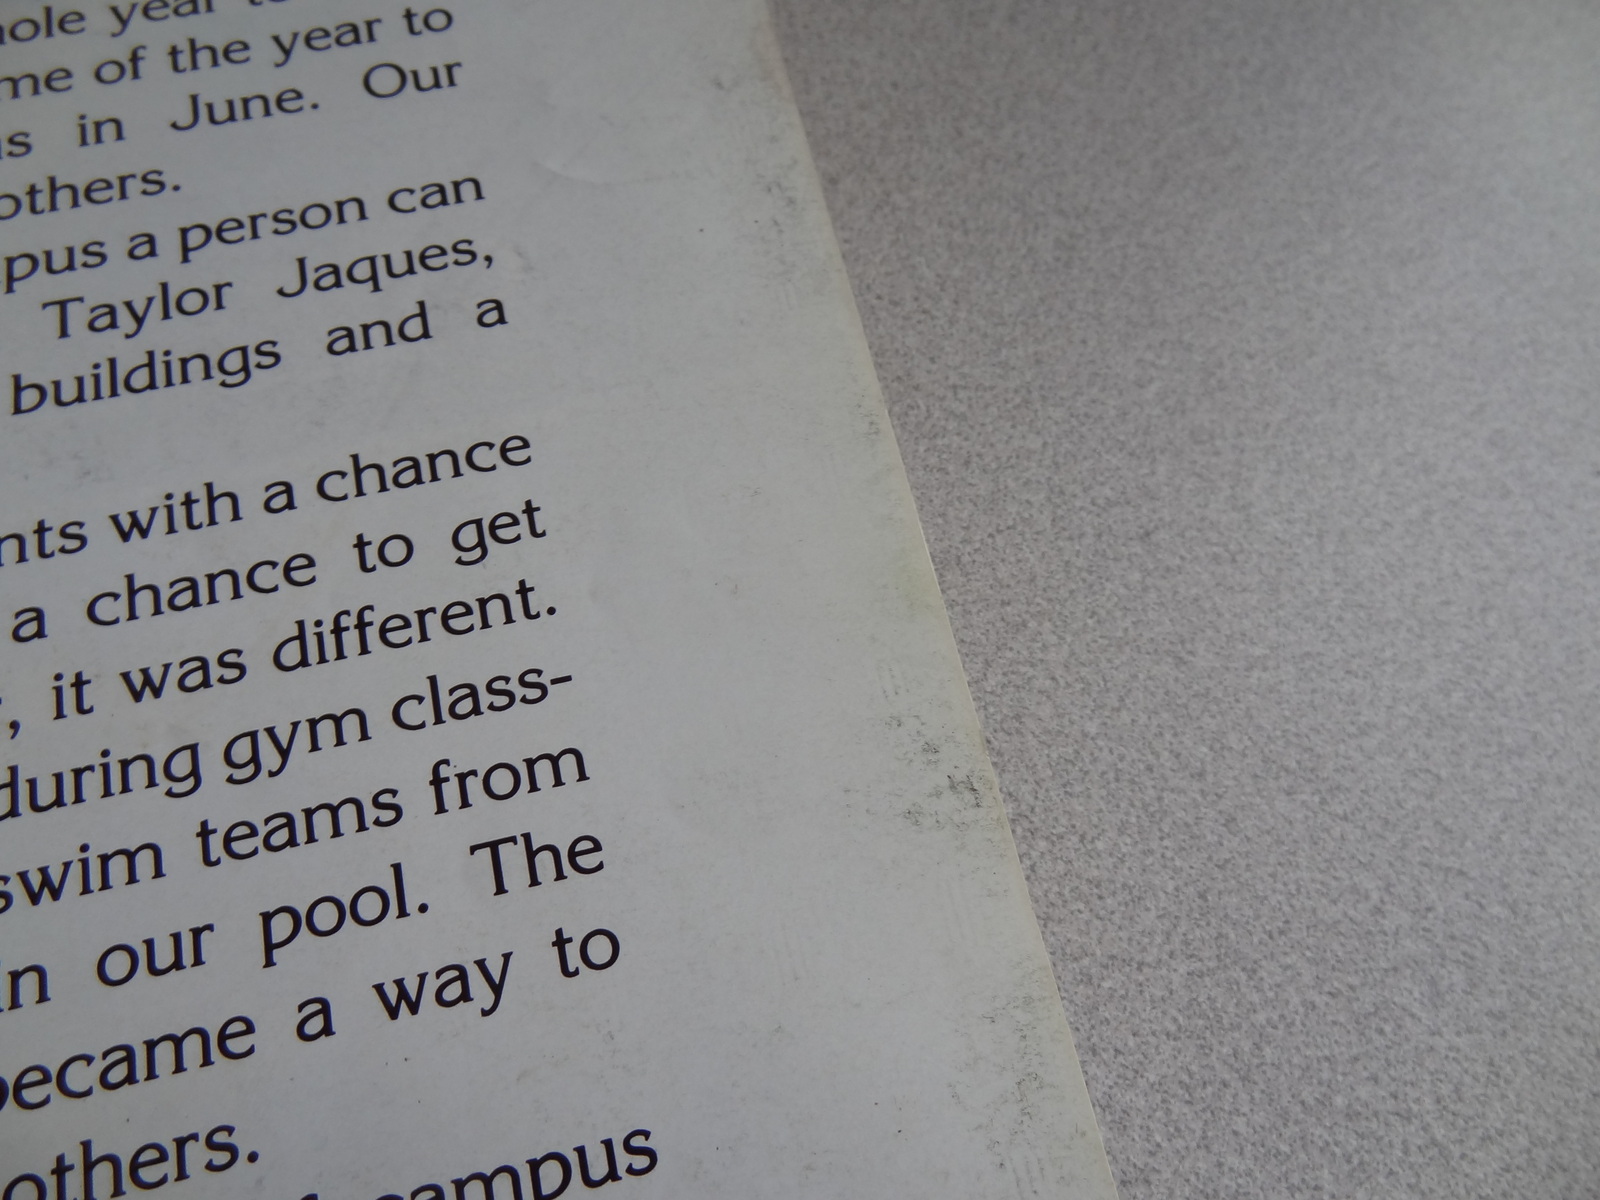 year
of the year to
in June. Our
others.
a person can
Taylor Jaques,
buildings and a
with a chance
a chance to get
, it was different.
during gym class-
swim teams from
in our pool. The
became a way to
others.
campus